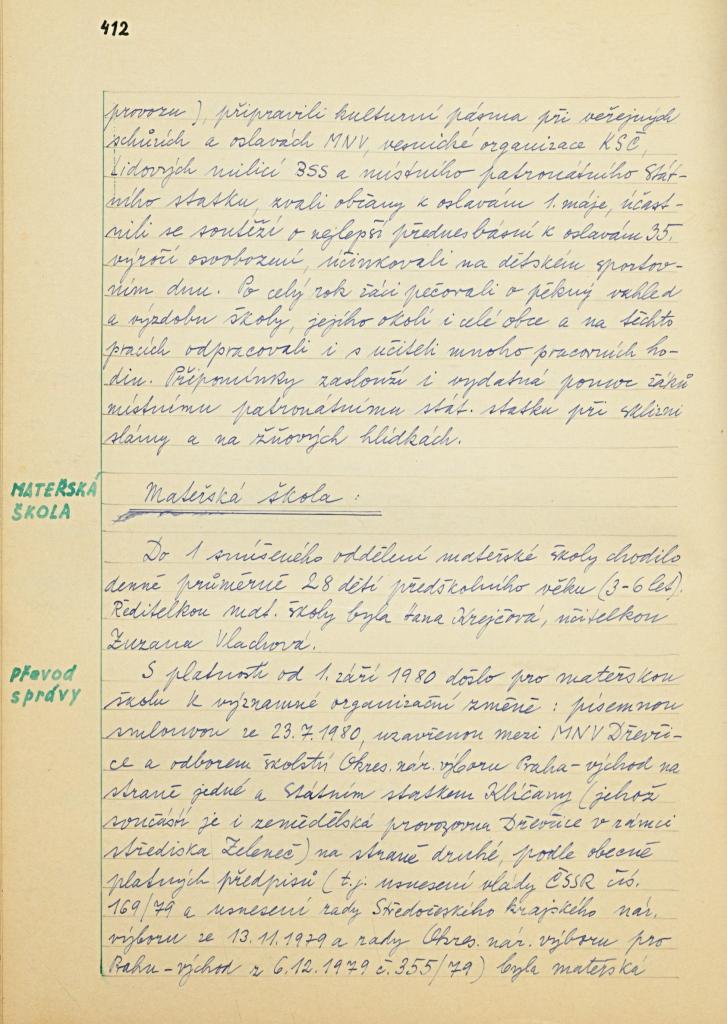 412
provozu), připravili kulturní pásma při veřejných
schůzích a oslavách MNV, vesnické organizace KSČ,
Lidových milicí BSS a místního patronátního Stát-
ního statku, zvali občany k oslavám 1. máje, účast-
nili se soutěží o nejlepší přednes básní k oslavám 35.
výročí osvobození, účinkovali na dětském sportov-
ním dnu. Po celý rok žáci pečovali o pěkný vzhled
a výzdobu školy, jejího okolí i celé obce a na těchto
pracích odpracovali i s učiteli mnoho pracovních ho-
din. Připomínky zaslouží i vydatná pomoc žáků
místnímu patronátnímu stát. statku při sklizni
slámy a na žňových hlídkách.
MATEŘSKÁ
ŠKOLA
Mateřská škola :
Do 1 smíšeného oddělení mateřské školy chodilo
denně průměrně 28 dětí předškolního věku (3-6 let).
Ředitelkou mat. školy byla Hana Krejčová, učitelkou
Zuzana Vlachová.
převod
správy
S platností od 1. září 1980 došlo pro mateřskou
školu k významné organizační změně : písemnou
smlouvou ze 23.7.1980, uzavřenou mezi MNV Dřevči-
ce a odborem školství Okres. nár. výboru Praha-východ na
straně jedné a Státním statkem Klíčany (jehož
součástí je i zemědělská provozovna Dřevčice v rámci
střediska Zeleneč) na straně druhé, podle obecně
platných předpisů (t.j. usnesení vlády ČSSR čís.
169/79 a usnesení rady Středočeského krajského nár.
výboru ze 13.11.1979 a rady Okres. nár. výboru pro
Prahu-východ z 6.12.1979 č. 355/79) byla mateřská